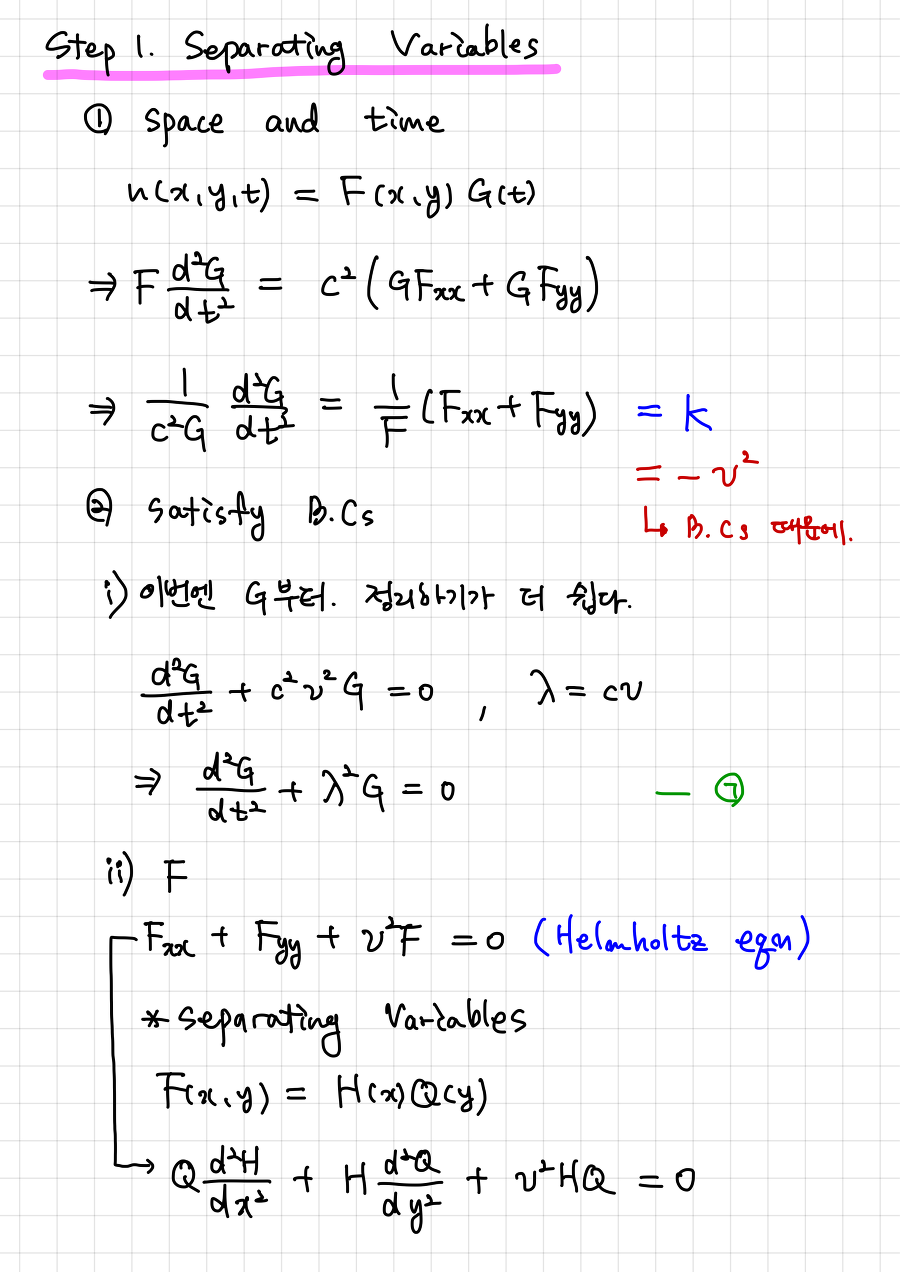 Step 1. Separating Variables
① space and time
u(x,y,t) = F(x,y) G(t)
⇒ F d²G/dt² = c² (GFxx + GFyy)
⇒ 1/(c²G) d²G/dt² = 1/F (Fxx + Fyy) = k
= -ν²
↳ B.Cs 때문에.
② satisfy B.Cs
i) 이번엔 G부터. 정리하기가 더 쉽다.
d²G/dt² + c²ν²G = 0 , λ = cν
⇒ d²G/dt² + λ²G = 0 — ㉠
ii) F
Fxx + Fyy + ν²F = 0 (Helmholtz eqn)
* separating Variables
F(x,y) = H(x)Q(y)
→ Q d²H/dx² + H d²Q/dy² + ν²HQ = 0